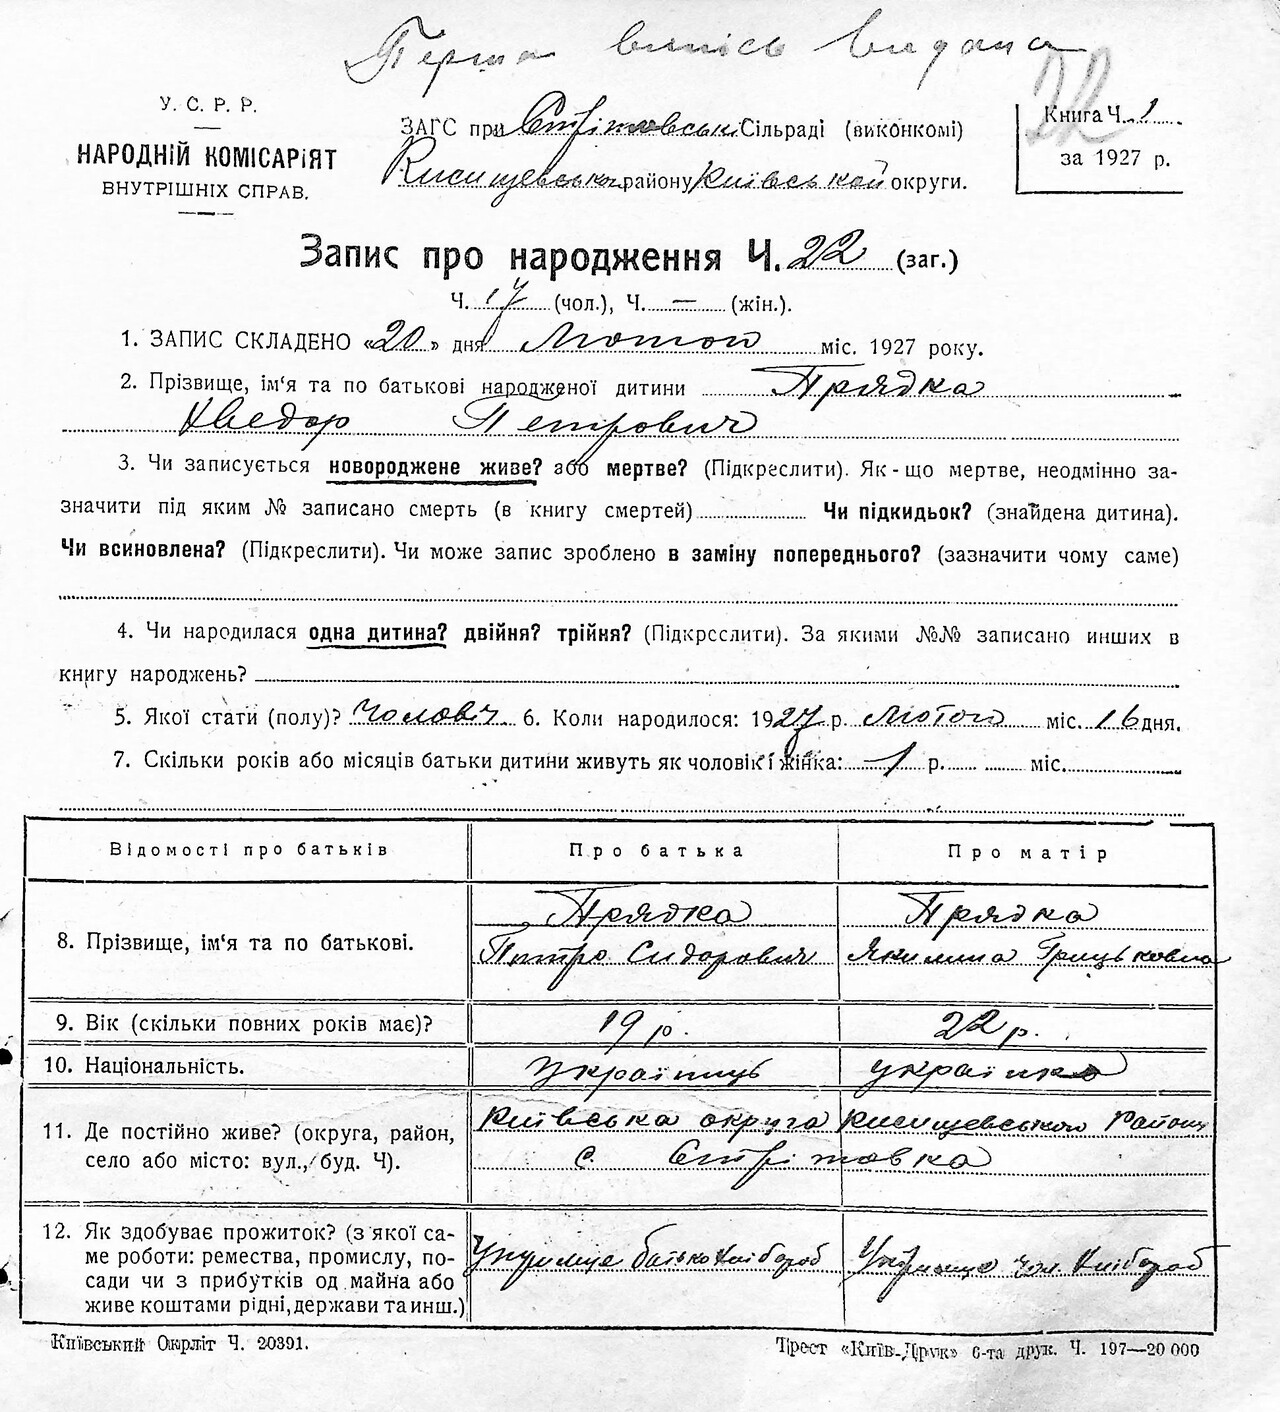 Перша випись видана
22
У. С. Р. Р.
НАРОДНІЙ КОМІСАРІЯТ
ВНУТРІШНІХ СПРАВ.
ЗАГС при Стрітовськ Сільраді (виконкомі)
Кисищевськ району Київської округи.
Книга Ч. 1
за 1927 р.
Запис про народження Ч. 22 (заг.)
Ч. 17 (чол.), Ч. — (жін.).
1. ЗАПИС СКЛАДЕНО «20» дня Лютого міс. 1927 року.
2. Прізвище, ім‘я та по батькові народженої дитини Прядка
Хведор Петрович
3. Чи записується новороджене живе? або мертве? (Підкреслити). Як-що мертве, неодмінно за-
значити під яким № записано смерть (в книгу смертей) Чи підкидьок? (знайдена дитина).
Чи всиновлена? (Підкреслити). Чи може запис зроблено в заміну попереднього? (зазначити чому саме)
4. Чи народилася одна дитина? двійня? трійня? (Підкреслити). За якими №№ записано инших в
книгу народжень?
5. Якої стати (полу)? Чоловіч 6. Коли народилося: 1927 р. Лютого міс. 16 дня.
7. Скільки років або місяців батьки дитини живуть як чоловік і жінка: 1 р. міс.
Відомості про батьків Про батька Про матір
8. Прізвище, ім‘я та по батькові. Прядка Прядка
Петро Сидорович Якилина Грицьковна
9. Вік (скільки повних років має)? 19 р. 22 р.
10. Національність. Українець українка
11. Де постійно живе? (округа, район, Київська округа Кисищевського Району
село або місто: вул., буд. Ч). с. Стрітовка
12. Як здобуває прожиток? (з якої са-
ме роботи: ремества, промислу, по-
сади чи з прибутків од майна або
живе коштами рідні, держави та инш.) батько Хлібороб чол. Хлібороб
Київський Окрліт Ч. 20391.
Трест «Київ-Друк» 6-та друк. Ч. 197—20 000